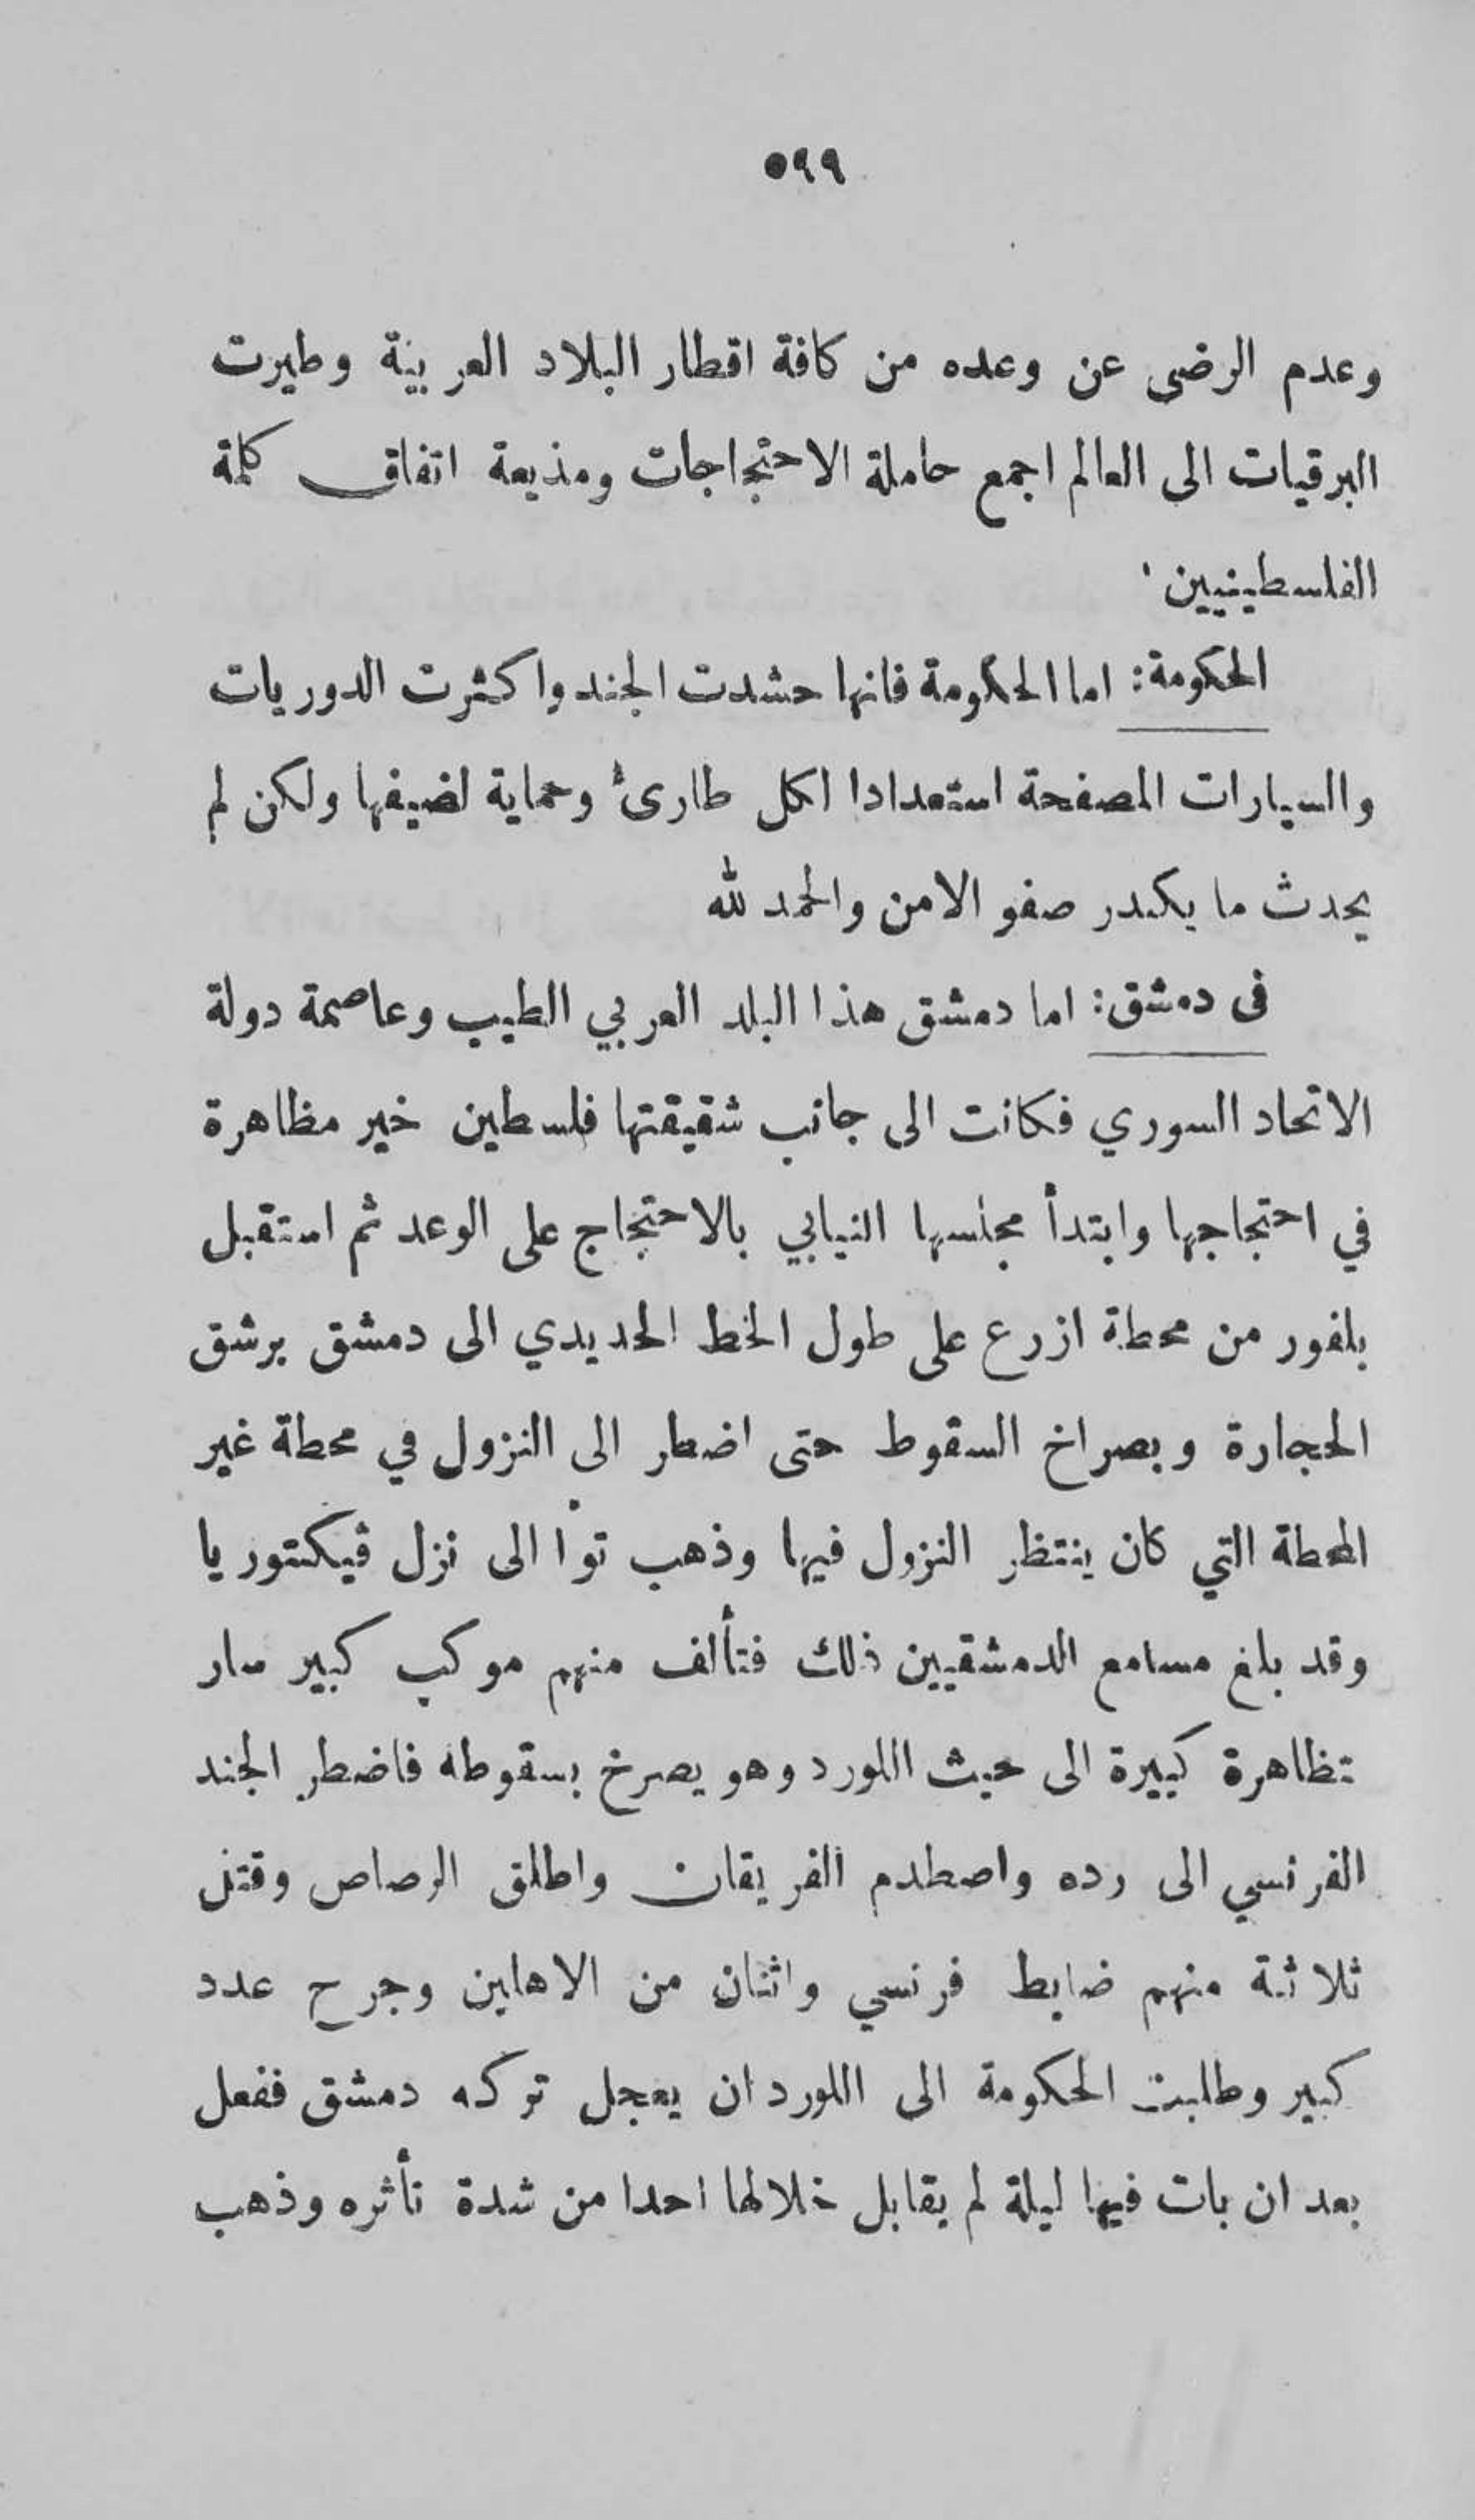 ٥٩٩
وعدم الرضى عن وعده من كافة اقطار البلاد العربية وطيرت
البرقيات الى العالم اجمع حاملة الاحتجاجات ومذيعة اتفاق كلمة
الفلسطينيين .
الحكومة: اما الحكومة فانها حشدت الجند واكثرت الدوريات
والسيارات المصفحة استعدادا لكل طارئ وحماية لضيفها ولكن لم
يحدث ما يكدر صفو الامن والحمد لله
فى دمشق: اما دمشق هذا البلد العربي الطيب وعاصمة دولة
الاتحاد السوري فكانت الى جانب شقيقتها فلسطين خير مظاهرة
في احتجاجها وابتدأ مجلسها النيابي بالاحتجاج على الوعد ثم استقبل
بلفور من محطة ازرع على طول الخط الحديدي الى دمشق برشق
الحجارة وبصراخ السقوط حتى اضطر الى النزول في محطة غير
المحطة التي كان ينتظر النزول فيها وذهب توا الى نزل ڤيكتوريا
وقد بلغ مسامع الدمشقيين ذلك فتألف منهم موكب كبير سار
بتظاهرة كبيرة الى حيث اللورد وهو يصرخ بسقوطه فاضطر الجند
الفرنسي الى رده واصطدم الفريقان واطلق الرصاص وقتل
ثلاثة منهم ضابط فرنسي واثنان من الاهلين وجرح عدد
كبير وطلبت الحكومة الى اللورد ان يعجل تركه دمشق ففعل
بعد ان بات فيها ليلة لم يقابل خلالها احدا من شدة تأثره وذهب